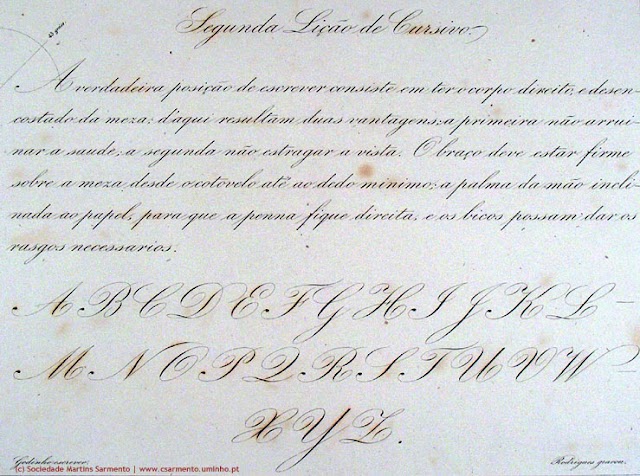 Segunda Lição de Cursivo.
A verdadeira posição de escrever consiste em ter o corpo direito, e desen-
costado da meza; d'aqui resultam duas vantagens; a primeira não arrui-
nar a saude; a segunda não estragar a vista. O braço deve estar firme
sobre a meza, desde o cotovelo até ao dedo minimo; a palma da mão incli-
nada ao papel, para que a penna fique direita, e os bicos possam dar os
rasgos necessarios.
A B C D E F G H I J K L
M N O P Q R S T U V W
X Y Z.
Godinho escreveo.
Rodrigues gravou.
(c) Sociedade Martins Sarmento | www.csarmento.uminho.pt